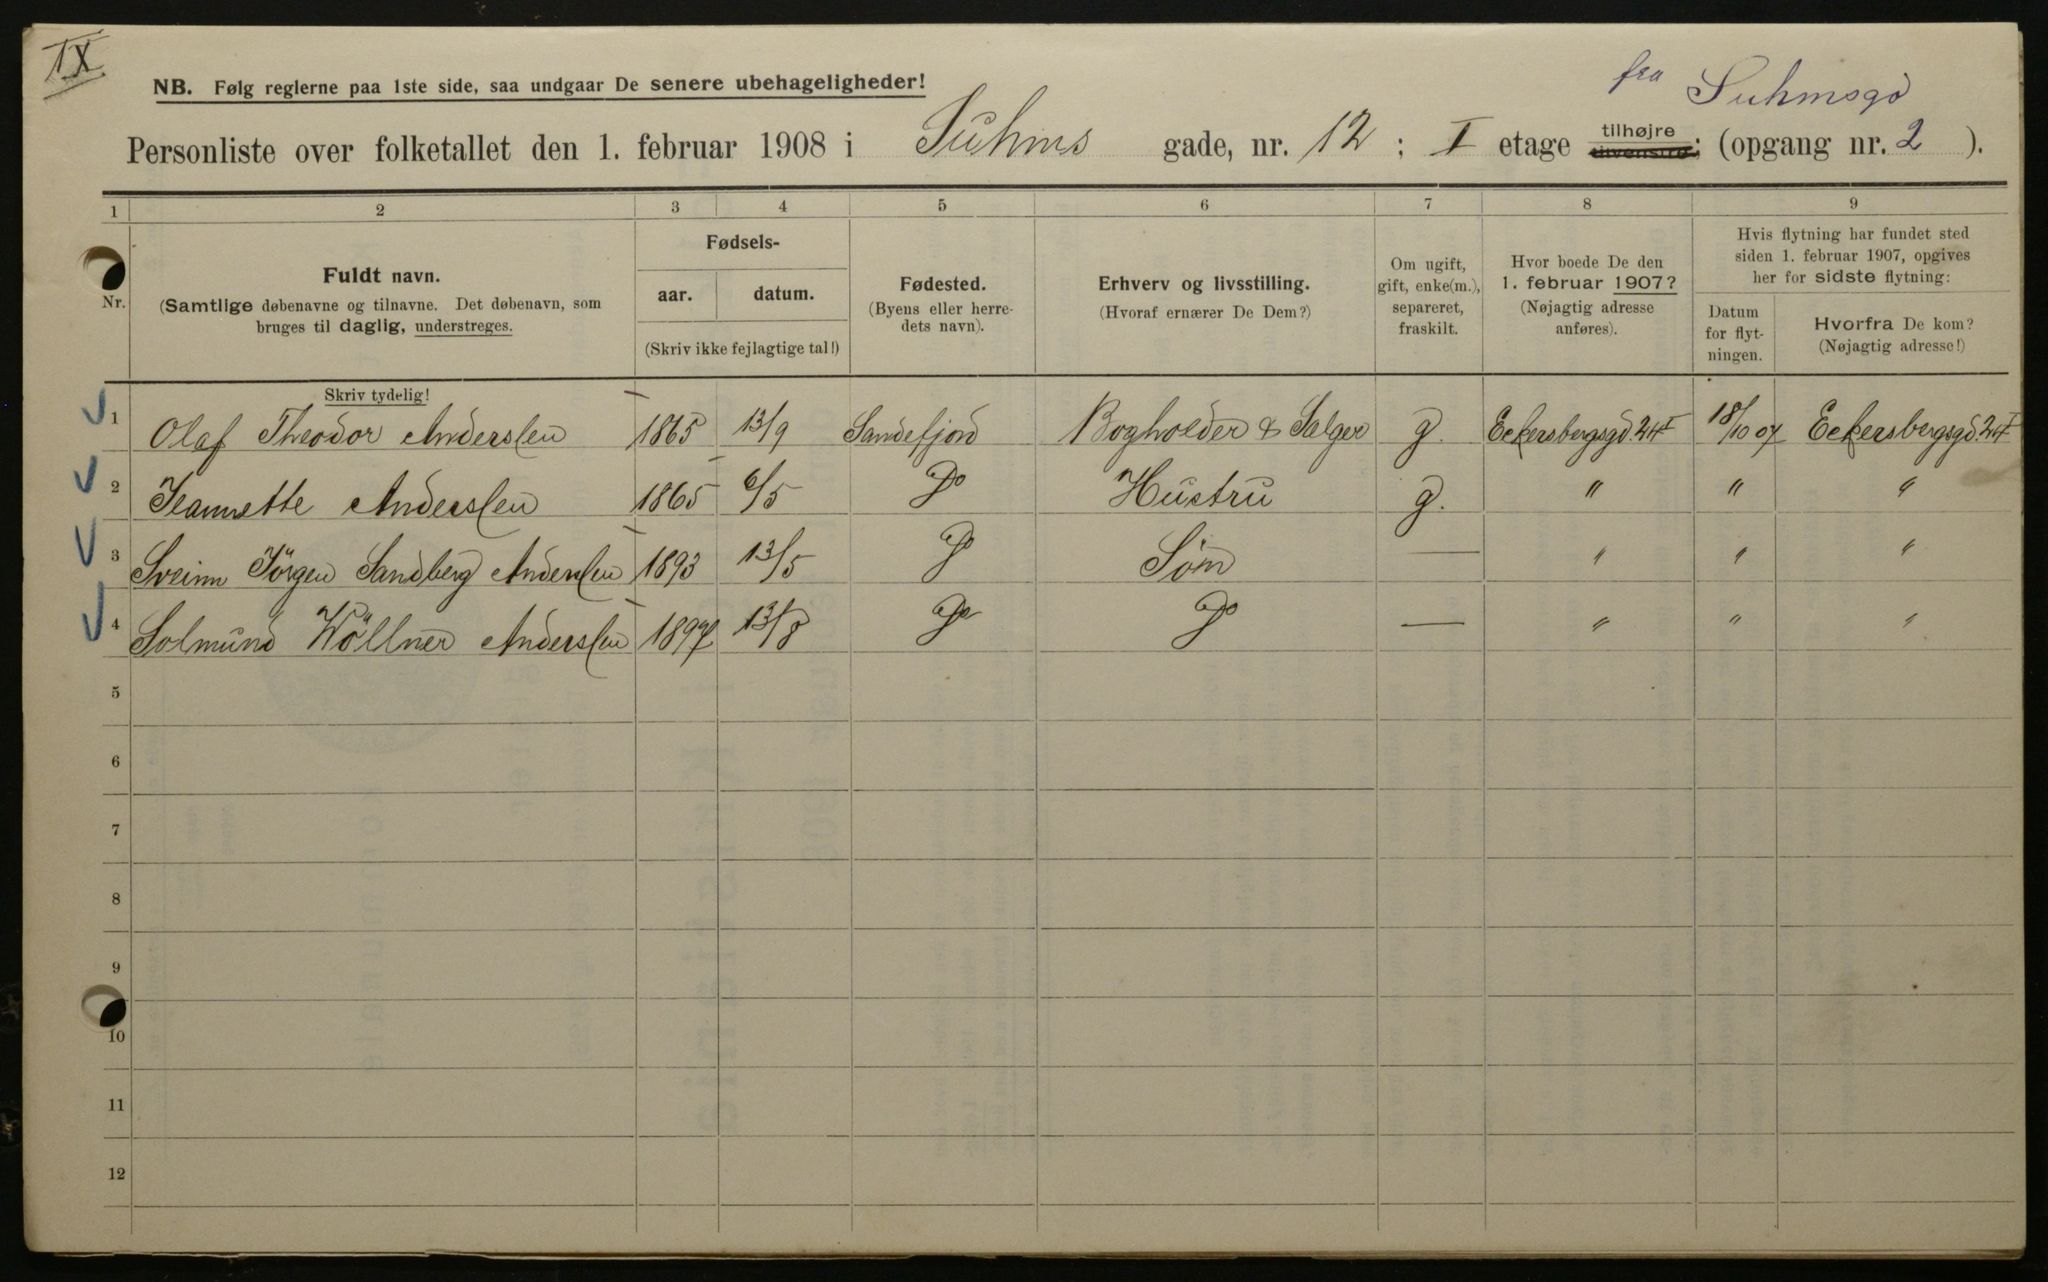 IX
NB. Følg reglerne paa 1ste side, saa undgaar De senere ubehageligheder!
fra Suhmsgd
Personliste over folketallet den 1. februar 1908 i Suhms gade, nr. 12 ; I etage tilhøjre tilvenstre; (opgang nr. 2 ).
1 2 3 4 5 6 7 8 9
Nr.
Fuldt navn.
(Samtlige døbenavne og tilnavne. Det døbenavn, som
bruges til daglig, understreges.
Fødsels-
aar. datum.
(Skriv ikke fejlagtige tal!)
Fødested.
(Byens eller herre-
dets navn).
Erhverv og livsstilling.
(Hvoraf ernærer De Dem?)
Om ugift,
gift, enke(m.),
separeret,
fraskilt.
Hvor boede De den
1. februar 1907?
(Nøjagtig adresse
anføres).
Hvis flytning har fundet sted
siden 1. februar 1907, opgives
her for sidste flytning:
Datum
for flyt-
ningen.
Hvorfra De kom?
(Nøjagtig adresse!)
Skriv tydelig!
1 Olaf Theodor Anderssen 1865 13/9 Sandefjord Bogholder & Sælger g. Eckersbergsgd. 24 I 18/10 07 Eckersbergsgd. 24 I
2 Jeannette Anderssen 1865 6/5 Do Hustru g. " " "
3 Sveinn Jörgen Sandberg Anderssen 1893 13/5 Do Søn — " " "
4 Solmund Wöllner Anderssen 1897 13/8 Do Do — " " "
5
6
7
8
9
10
11
12